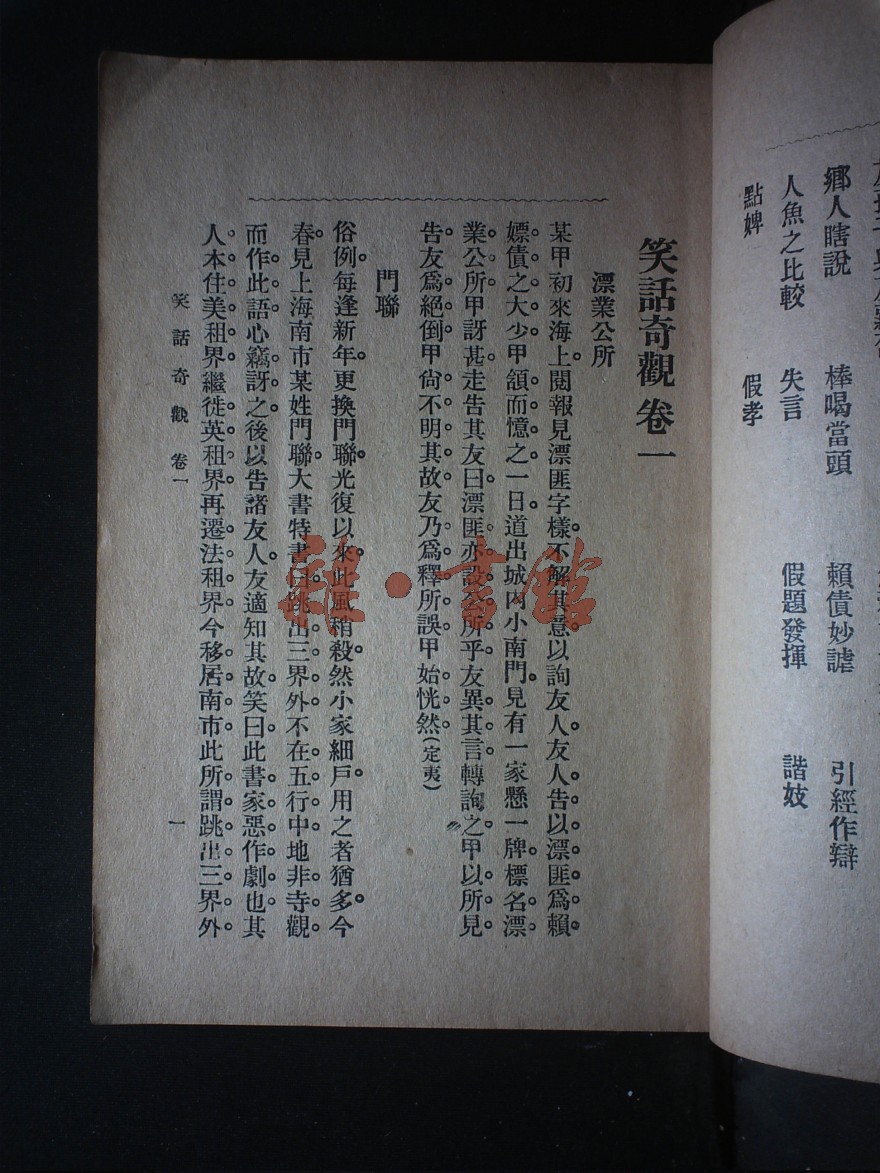 鄉人瞎說 棒喝當頭 賴債妙謔 引經作辯
人魚之比較 失言 假題發揮 諧妓
黠婢 假孝
笑話奇觀 卷一
漂業公所
某甲初來海上閱報見漂匪字樣不解其意以詢友人友人告以漂匪爲賴
嫖債之大少甲頷而憶之一日道出城內小南門見有一家懸一牌標名漂
業公所甲訝甚走告其友曰漂匪亦設公所乎友異其言轉詢之甲以所見
告友爲絕倒甲尙不明其故友乃爲釋所誤甲始恍然(定夷)
門聯
俗例每逢新年更換門聯光復以來此風稍殺然小家細戶用之者猶多今
春見上海南市某姓門聯大書特書曰跳出三界外不在五行中地非寺觀
而作此語心竊訝之後以告諸友人友適知其故笑曰此書家惡作劇也其
人本住美租界繼徙英租界再遷法租界今移居南市此所謂跳出三界外
笑話奇觀 卷一
一
雜·書館